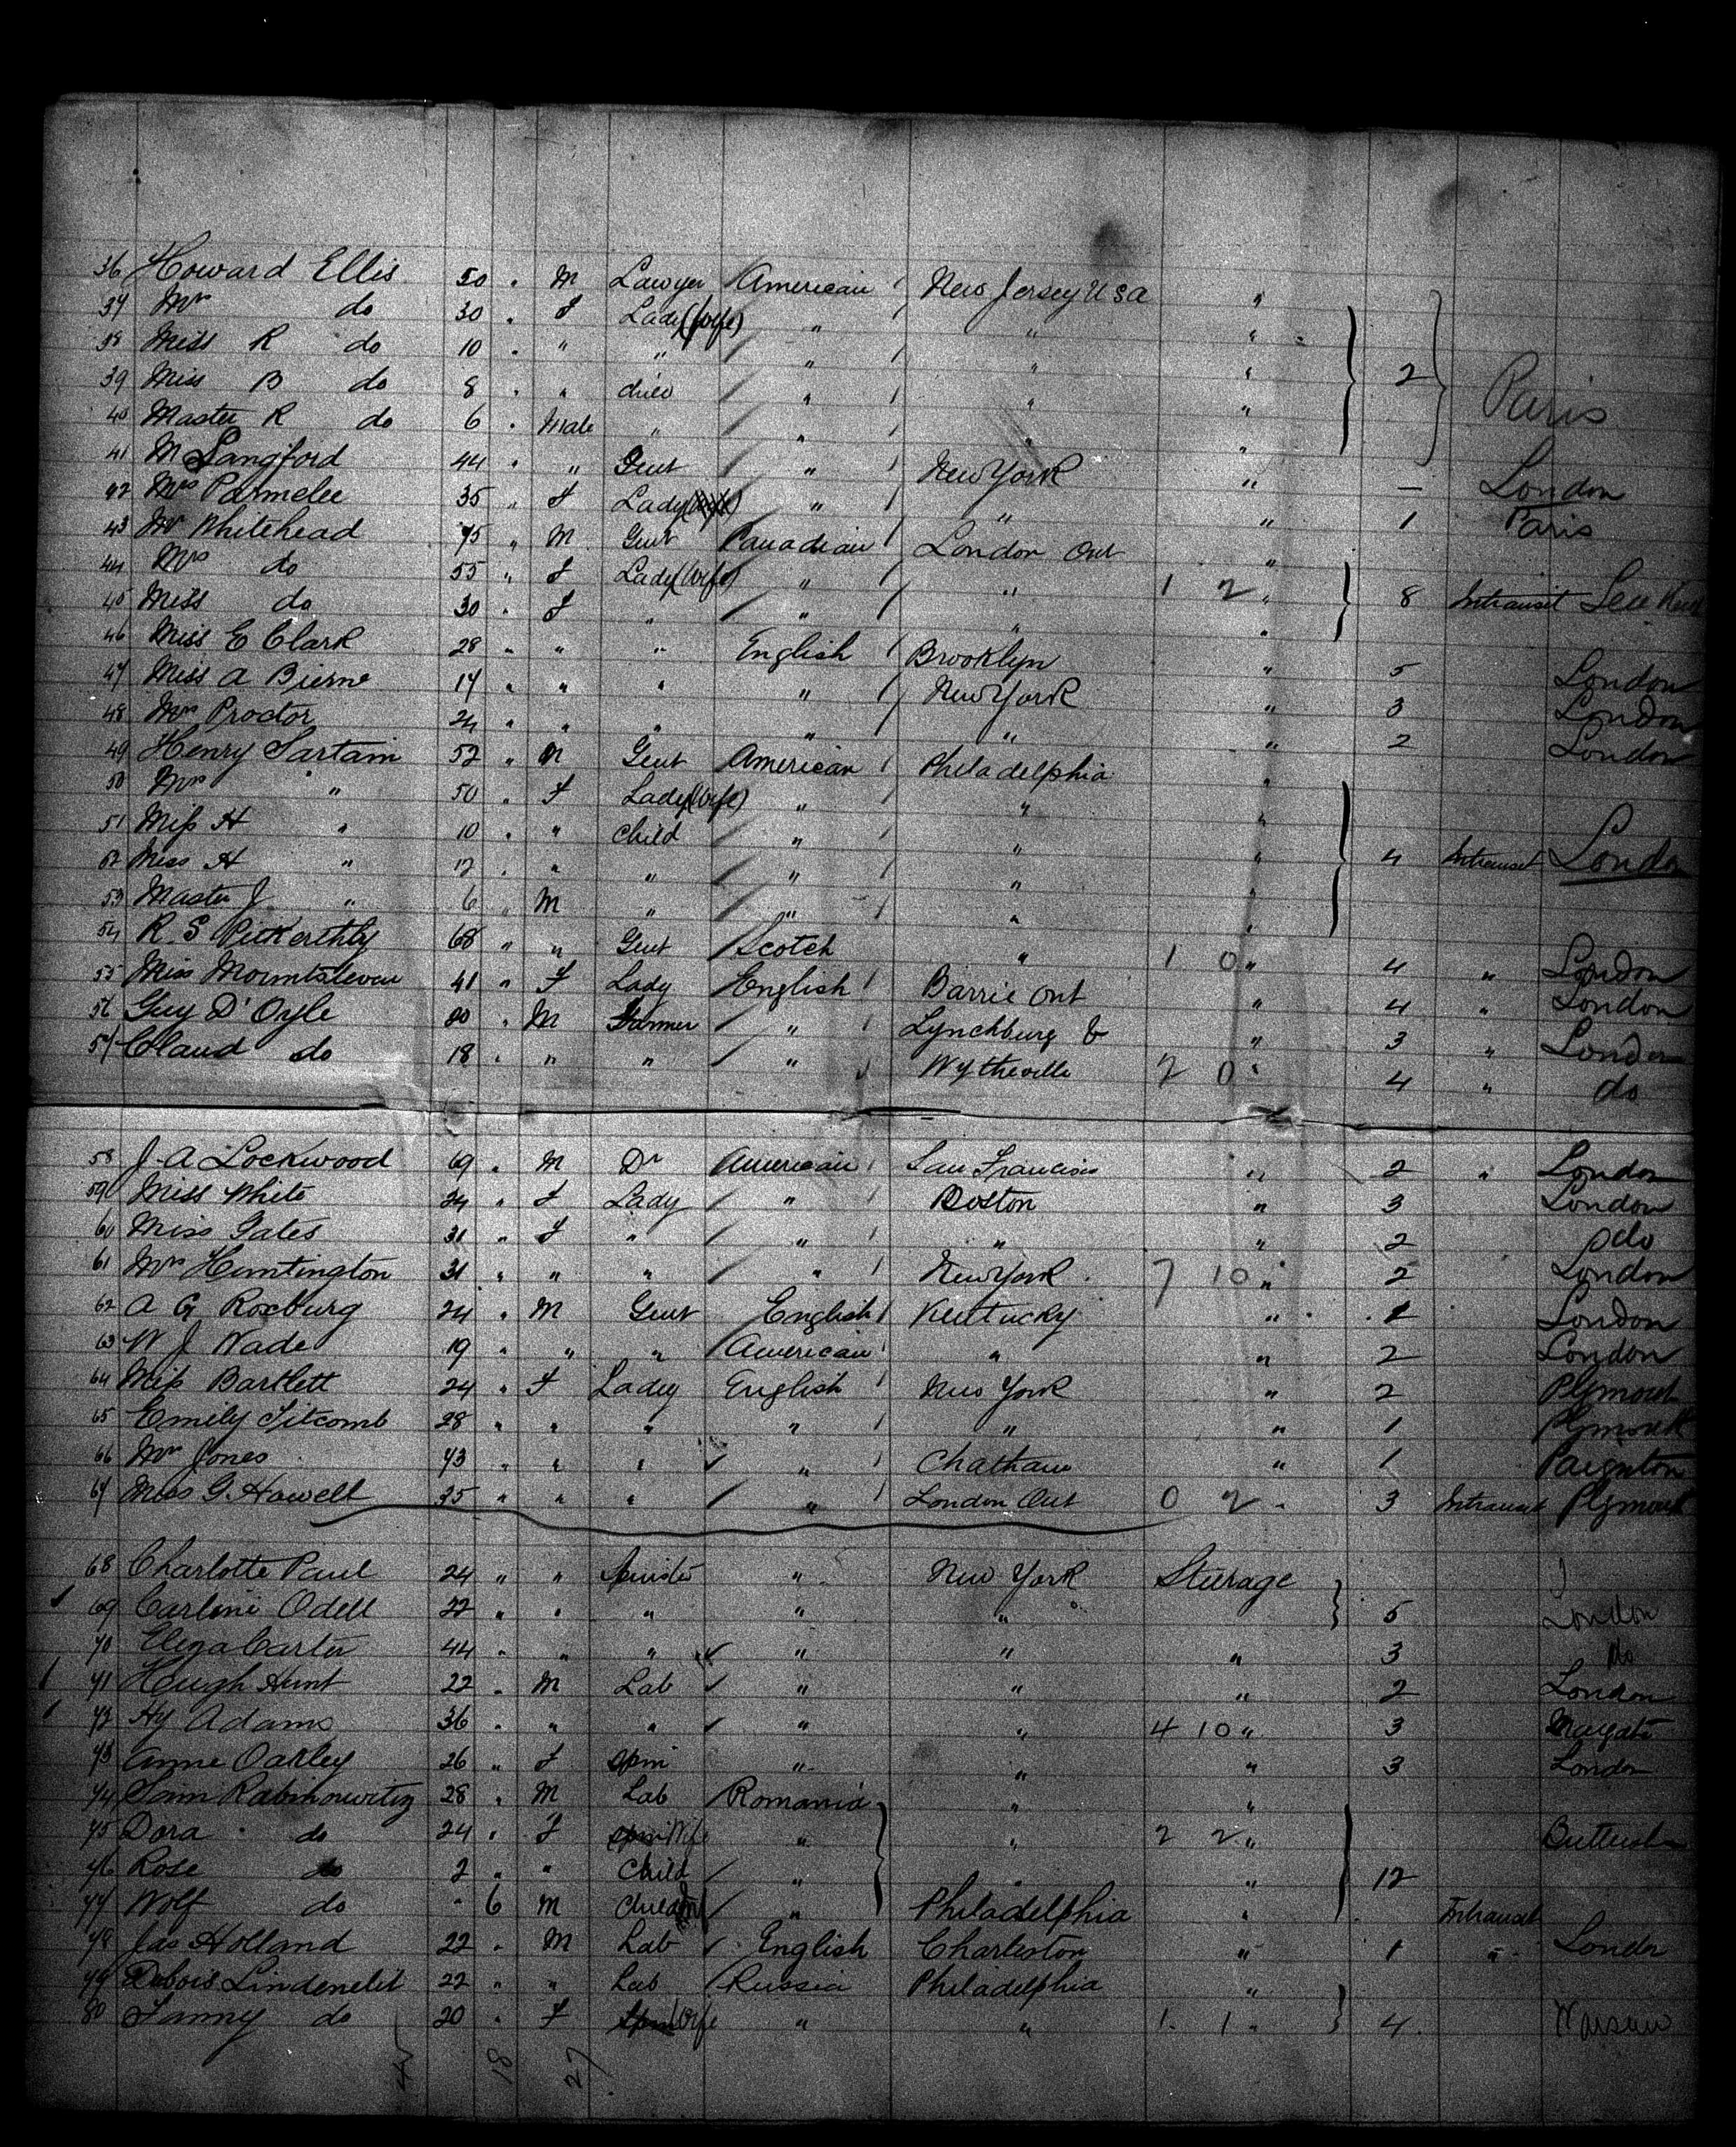 36 Howard Ellis 50 " M Lawyer American New Jersey USA "
37 Mrs do 30 " F Lady (Wife) " " "
38 Miss R do 10 " " " " " "
39 Miss B do 8 " " child " " " 2 Paris
40 Master R do 6 " Male " " " "
41 M Langford 44 " " Gent " New York " — London
42 Mrs Parmelee 35 " F Lady " " " 1 Paris
43 Mr Whitehead 75 " M Gent Canadian London Ont "
44 Mrs do 55 " F Lady (Wife) " " 1 2 " 8 Intransit
45 Miss do 30 " F " " " "
46 Miss E Clark 28 " " " English Brooklyn " 5 London
47 Miss A Bierne 17 " " " " New York " 3 London
48 Mrs Proctor 24 " " " " " " 2 London
49 Henry Sartain 52 " M Gent American Philadelphia "
50 Mrs " 50 " F Lady (Wife) " " "
51 Miss H " 10 " " Child " " "
52 Miss H " 12 " " " " " " 4 Intransit London
53 Master J " 6 " M " " " "
54 R. S 68 " " Gent Scotch " 1 0 " 4 " London
55 Miss 41 " F Lady English Barrie Ont " 4 " London
56 Guy D'Oyle 20 " M Farmer " Lynchburg & " 3 " London
57 Claud do 18 " " " " Wytheville 2 0 " 4 " do
58 J. A Lockwood 69 " M Dr American San Francisco " 2 " London
59 Miss White 24 " F Lady " Boston " 3 London
60 Miss Gates 31 " F " " " " 2 do
61 Mrs Huntington 31 " " " " New York 7 10 " 2 London
62 A G Roxburg 24 " M Gent English Kentucky " 1 London
63 W J Wade 19 " " " American " " 2 London
64 Miss Bartlett 24 " F Lady English New York " 2 Plymouth
65 Emily Titcomb 28 " " " " " " 1 Plymouth
66 Mrs Jones 43 " " " " Chatham " 1 Paignton
67 Miss G. Howell 25 " " " " London Ont 0 2 " 3 Intransit Plymouth
68 Charlotte Paul 24 " " Spinster " New York Sturage
69 Carline Odell 22 " " " " " 5 London
70 Eliza Carter 44 " " " " " " 3 do
71 Hugh Hunt 22 " M Lab " " " 2 London
72 Hy Adams 36 " " " " " 4 10 " 3 Margate
73 Anne Oakley 26 " F Spin " " " 3 London
74 Rabinowitz 28 " M Lab Romania " "
75 Dora do 24 " F Wife " " 2 2 "
76 Rose do 2 " " Child " " " 12
77 Wolf do " 6 M Child " Philadelphia " Intransit
78 Jas Holland 22 " M Lab English Charleston " 1 " London
79 22 " " Lab Russia Philadelphia "
80 Fanny do 20 " F Wife " " 1 1 " 4 Warsaw
18 27